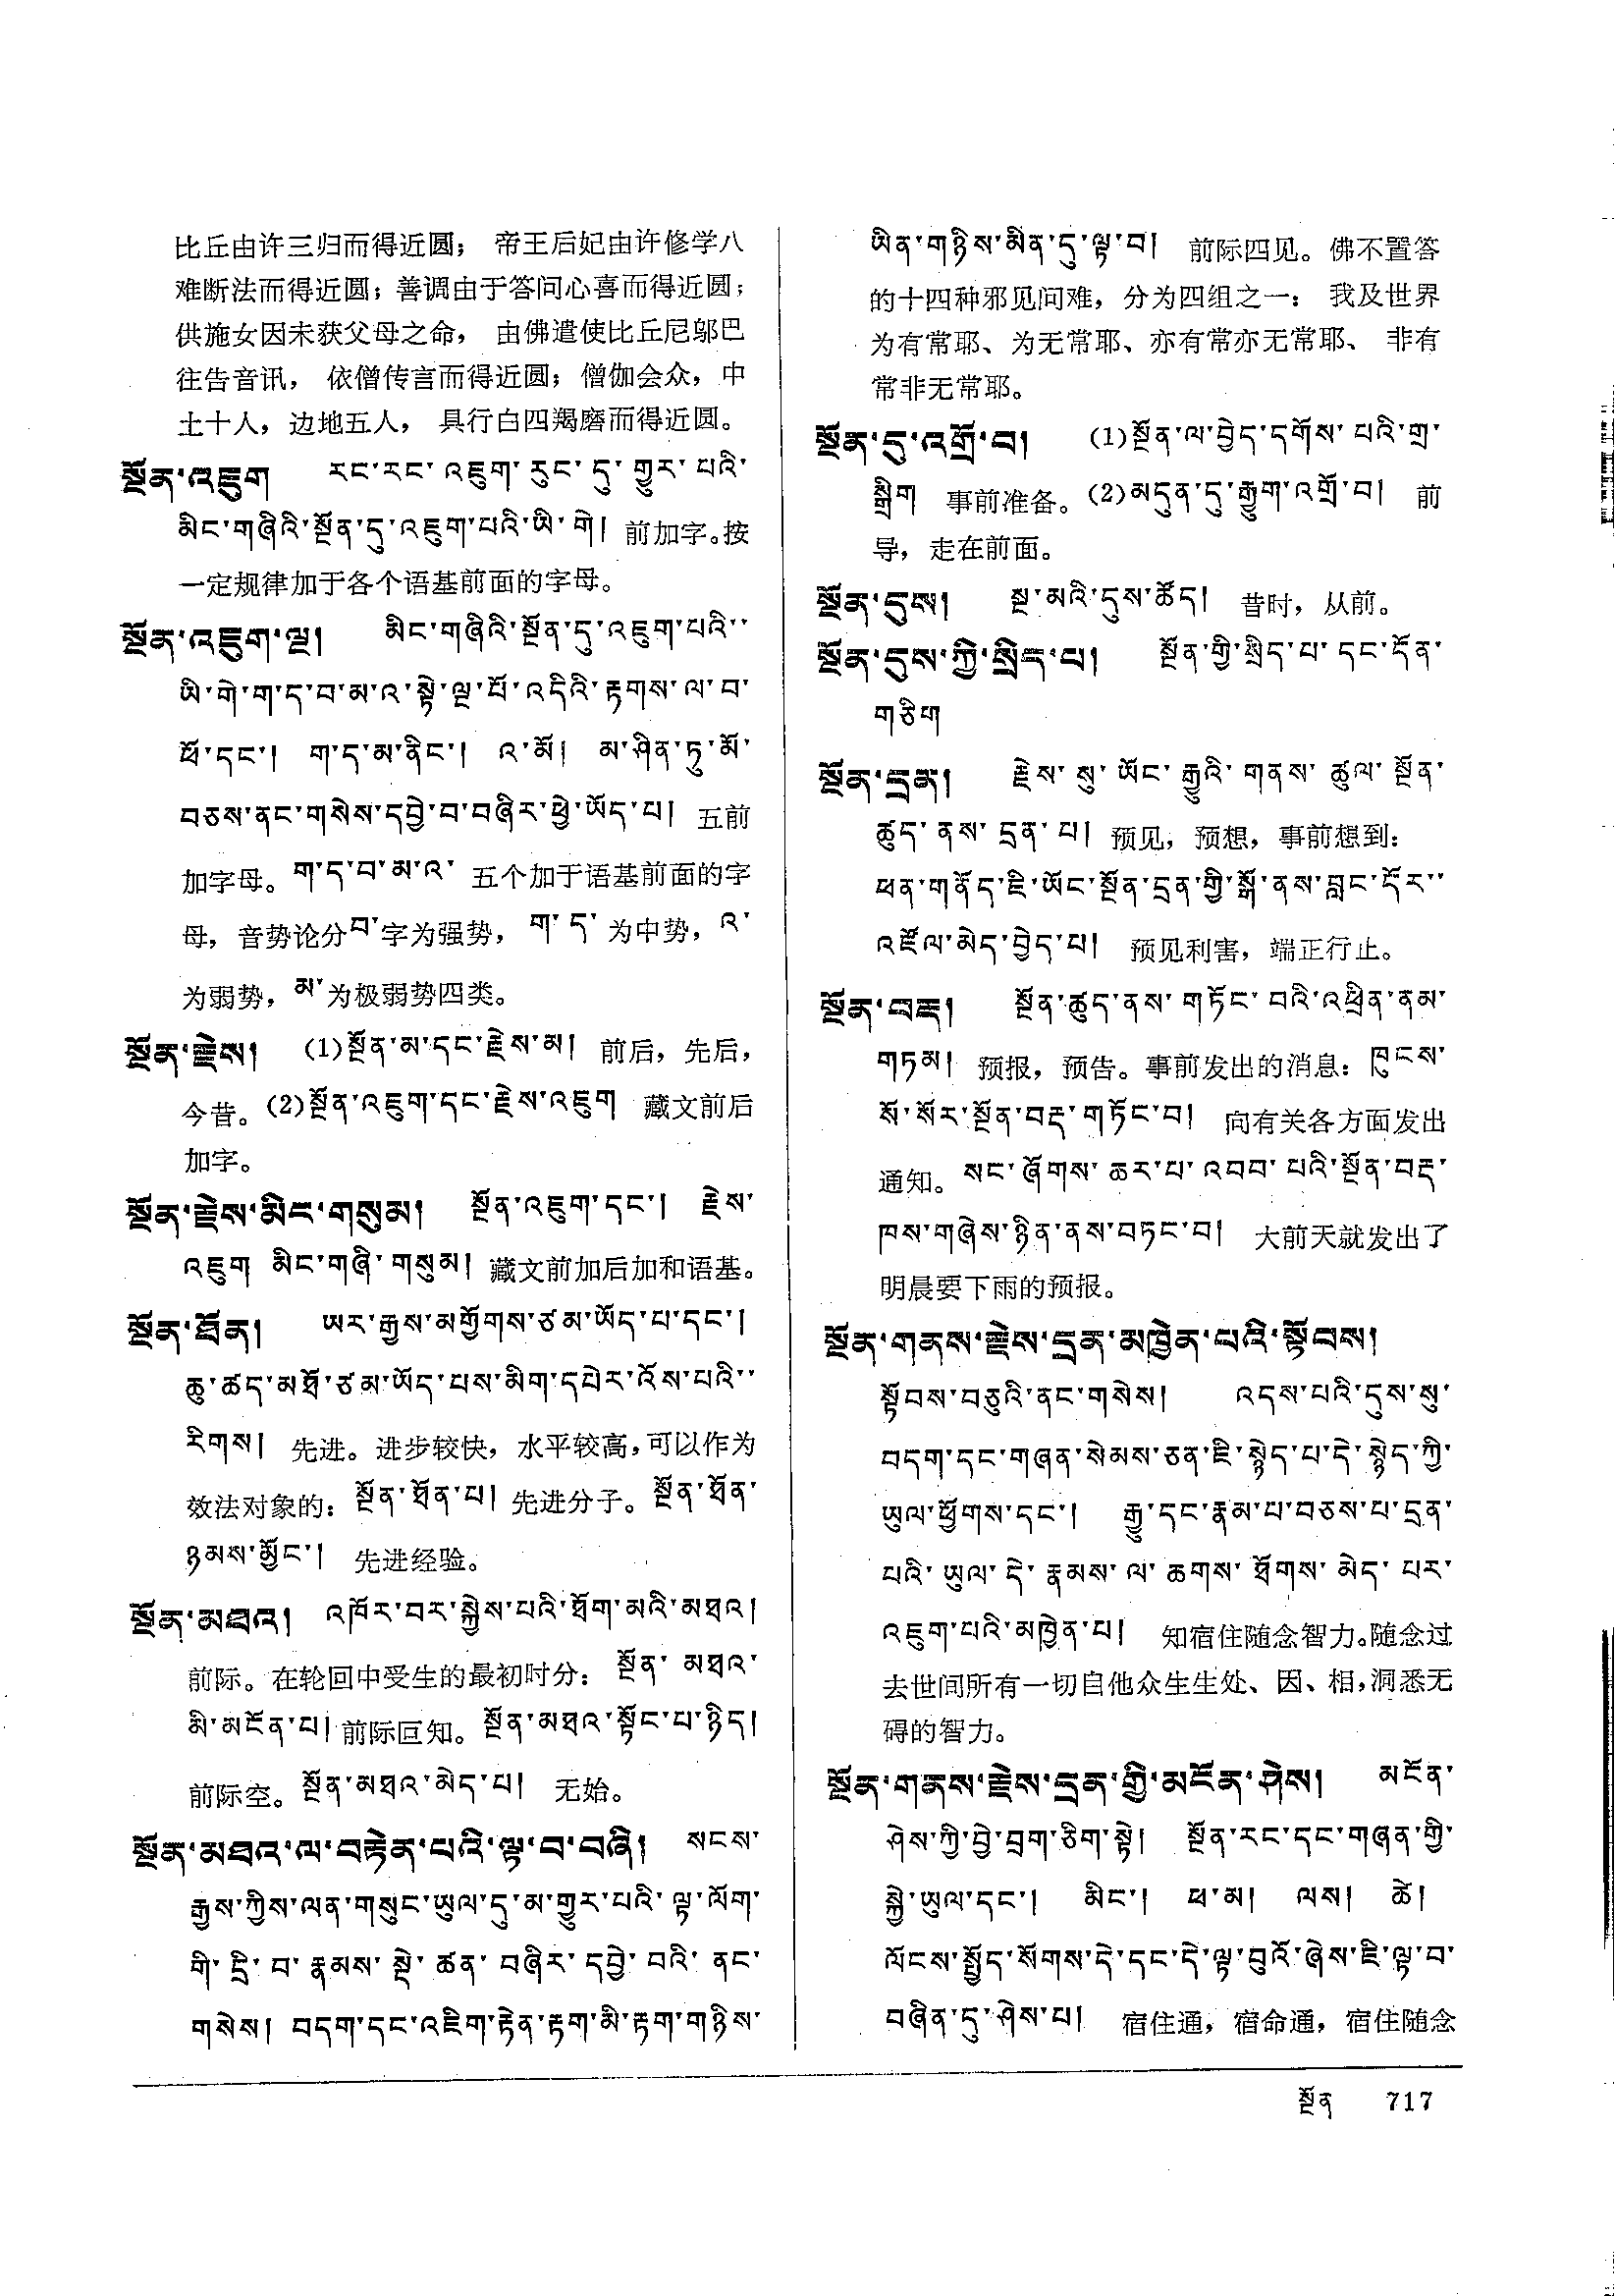 比丘由许三归而得近圆； 帝王后妃由许修学八
难断法而得近圆；善调由于答问心喜而得近圆；
供施女因未获父母之命， 由佛遣使比丘尼邬巴
往告音讯， 依僧传言而得近圆；僧伽会众，中
土十人，边地五人， 具行白四羯磨而得近圆。
སྔོན་འཇུག རང་རང་འཇུག་རུང་དུ་གྱུར་པའི་
མིང་གཞིའི་སྔོན་དུ་འཇུག་པའི་ཡི་གེ། 前加字。按
一定规律加于各个语基前面的字母。
སྔོན་འཇུག་ལྔ། མིང་གཞིའི་སྔོན་དུ་འཇུག་པའི་་
ཡི་གེ་ག་ད་བ་མ་འ་སྟེ་ལྔ་པོ་འདིའི་རྟགས་ལ་བ་
ཕོ་དང་། ག་ད་མ་ནིང་། འ་མོ། མ་ཤིན་ཏུ་མོ་
བཅས་ནང་གསེས་དབྱེ་བ་བཞིར་ཕྱེ་ཡོད་པ། 五前
加字母。ག་ད་བ་མ་འ་ 五个加于语基前面的字
母，音势论分བ་字为强势， ག་ད་ 为中势，འ་
为弱势，མ་为极弱势四类。
སྔོན་རྗེས། (1)སྔོན་མ་དང་རྗེས་མ། 前后，先后，
今昔。(2)སྔོན་འཇུག་དང་རྗེས་འཇུག 藏文前后
加字。
སྔོན་རྗེས་མིང་གསུམ། སྔོན་འཇུག་དང་། རྗེས་
འཇུག མིང་གཞི་གསུམ། 藏文前加后加和语基。
སྔོན་ཐོན། ཡར་རྒྱས་མགྱོགས་ཙམ་ཡོད་པ་དང་།
ཆུ་ཚད་མཐོ་ཙམ་ཡོད་པས་མིག་དཔེར་འོས་པའི་་
རིགས། 先进。进步较快，水平较高，可以作为
效法对象的：སྔོན་ཐོན་པ། 先进分子。སྔོན་ཐོན་
ཉམས་མྱོང་། 先进经验。
སྔོན་མཐའ། འཁོར་བར་སྐྱེས་པའི་ཐོག་མའི་མཐའ།
前际。在轮回中受生的最初时分： སྔོན་མཐའ་
མི་མངོན་པ། 前际叵知。སྔོན་མཐའ་སྟོང་པ་ཉིད།
前际空。སྔོན་མཐའ་མེད་པ། 无始。
སྔོན་མཐའ་ལ་བརྟེན་པའི་ལྟ་བ་བཞི། སངས་
རྒྱས་ཀྱིས་ལན་གསུང་ཡུལ་དུ་མ་གྱུར་པའི་ལྟ་ལོག་
གི་དྲི་བ་རྣམས་སྡེ་ཚན་བཞིར་དབྱེ་བའི་ནང་
གསེས། བདག་དང་འཇིག་རྟེན་རྟག་མི་རྟག་གཉིས་
ཡིན་གཉིས་མིན་དུ་ལྟ་བ། 前际四见。佛不置答
的十四种邪见问难，分为四组之一： 我及世界
为有常耶、为无常耶、亦有常亦无常耶、 非有
常非无常耶。
སྔོན་དུ་འགྲོ་བ། (1)སྔོན་ལ་བྱེད་དགོས་པའི་གྲ་
སྒྲིག 事前准备。(2)མདུན་དུ་རྒྱུག་འགྲོ་བ། 前
导，走在前面。
སྔོན་དུས། སྔ་མའི་དུས་ཚོད། 昔时，从前。
སྔོན་དུས་ཀྱི་སྲིད་པ། སྔོན་གྱི་སྲིད་པ་དང་དོན་
གཅིག
སྔོན་དྲན། རྗེས་སུ་ཡོང་རྒྱུའི་གནས་ཚུལ་སྔོན་
ཚུད་ནས་དྲན་པ། 预见，预想，事前想到：
ཕན་གནོད་ཇི་ཡོང་སྔོན་དྲན་གྱི་སྒོ་ནས་བླང་དོར་་
འཛོལ་མེད་བྱེད་པ། 预见利害，端正行止。
སྔོན་བརྡ། སྔོན་ཚུད་ནས་གཏོང་བའི་འཕྲིན་ནམ་
གཏམ། 预报，预告。事前发出的消息：ཁུངས་
སོ་སོར་སྔོན་བརྡ་གཏོང་བ། 向有关各方面发出
通知。སང་ཞོགས་ཆར་པ་འབབ་པའི་སྔོན་བརྡ་
ཁས་གཞེས་ཉིན་ནས་བཏང་བ། 大前天就发出了
明晨要下雨的预报。
སྔོན་གནས་རྗེས་དྲན་མཁྱེན་པའི་སྟོབས།
སྟོབས་བཅུའི་ནང་གསེས། འདས་པའི་དུས་སུ་
བདག་དང་གཞན་སེམས་ཅན་ཇི་སྙེད་པ་དེ་སྙེད་ཀྱི་
ཡུལ་ཕྱོགས་དང་། རྒྱུ་དང་རྣམ་པ་བཅས་པ་དྲན་
པའི་ཡུལ་དེ་རྣམས་ལ་ཆགས་ཐོགས་མེད་པར་
འཇུག་པའི་མཁྱེན་པ། 知宿住随念智力。随念过
去世间所有一切自他众生生处、因、相，洞悉无
碍的智力。
སྔོན་གནས་རྗེས་དྲན་གྱི་མངོན་ཤེས། མངོན་
ཤེས་ཀྱི་བྱེ་བྲག་ཅིག་སྟེ། སྔོན་རང་དང་གཞན་གྱི་
སྐྱེ་ཡུལ་དང་། མིང་། ཕ་མ། ལས། ཚེ།
ལོངས་སྤྱོད་སོགས་དེ་དང་དེ་ལྟ་བུའོ་ཞེས་ཇི་ལྟ་བ་
བཞིན་དུ་ཤེས་པ། 宿住通，宿命通，宿住随念
སྔོན 717